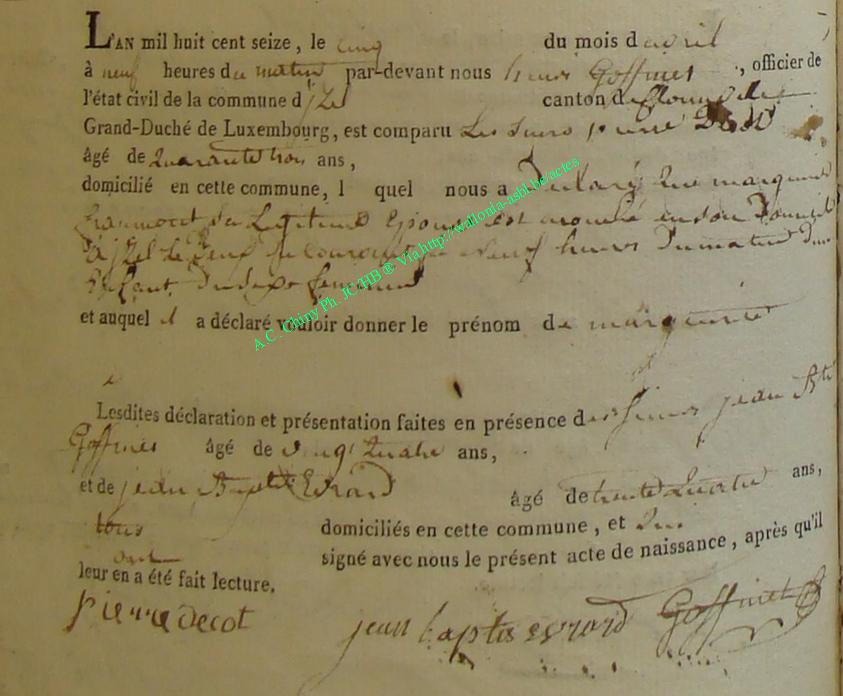 L'AN mil huit cent seize, le cinq du mois d'avril
à neuf heures du matin par-devant nous henri Goffinet, officier de
l'état civil de la commune d jzel canton de
Grand-Duché de Luxembourg, est comparu Le Sieur pierre
âgé de quarante trois ans,
domicilié en cette commune, l quel nous a Declaré que marguerite
sa Legitime Epouse est acouché en son Domicile
à jzel le neuf du courant a neuf heures Du matin D'un
Enfant du sexe feminin
et auquel il a déclaré vouloir donner le prénom de marguerite
Lesdites déclaration et présentation faites en présence des Sieurs jean Bte
Goffinet âgé de vingt quatre ans,
et de jean Baptiste Evrard âgé de trente quatre ans,
tous domiciliés en cette commune, et qui
ont signé avec nous le présent acte de naissance, après qu'il
leur en a été fait lecture.
pierre decot jean baptis evrard Goffinet
A.C. Chiny Ph. JC/HB ® Via http://wallonia-asbl.be/actes